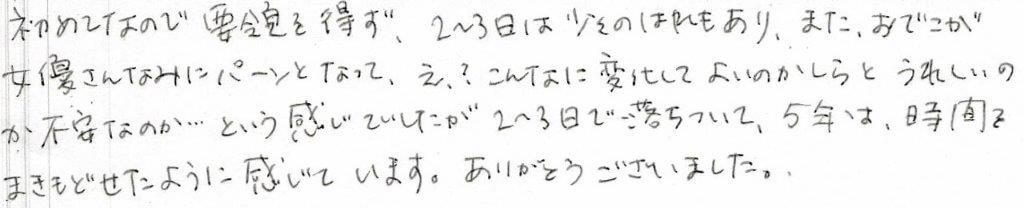 初めてなので要領を得ず、2~3日は少々のはれもあり、また、おでこが
女優さんなみにパーンとなって、え、? こんなに変化してよいのかしらと うれしいの
か不安なのか… という感じでしたが2~3日で落ちついて、5年は、時間を
まきもどせたように感じています。ありがとうございました。